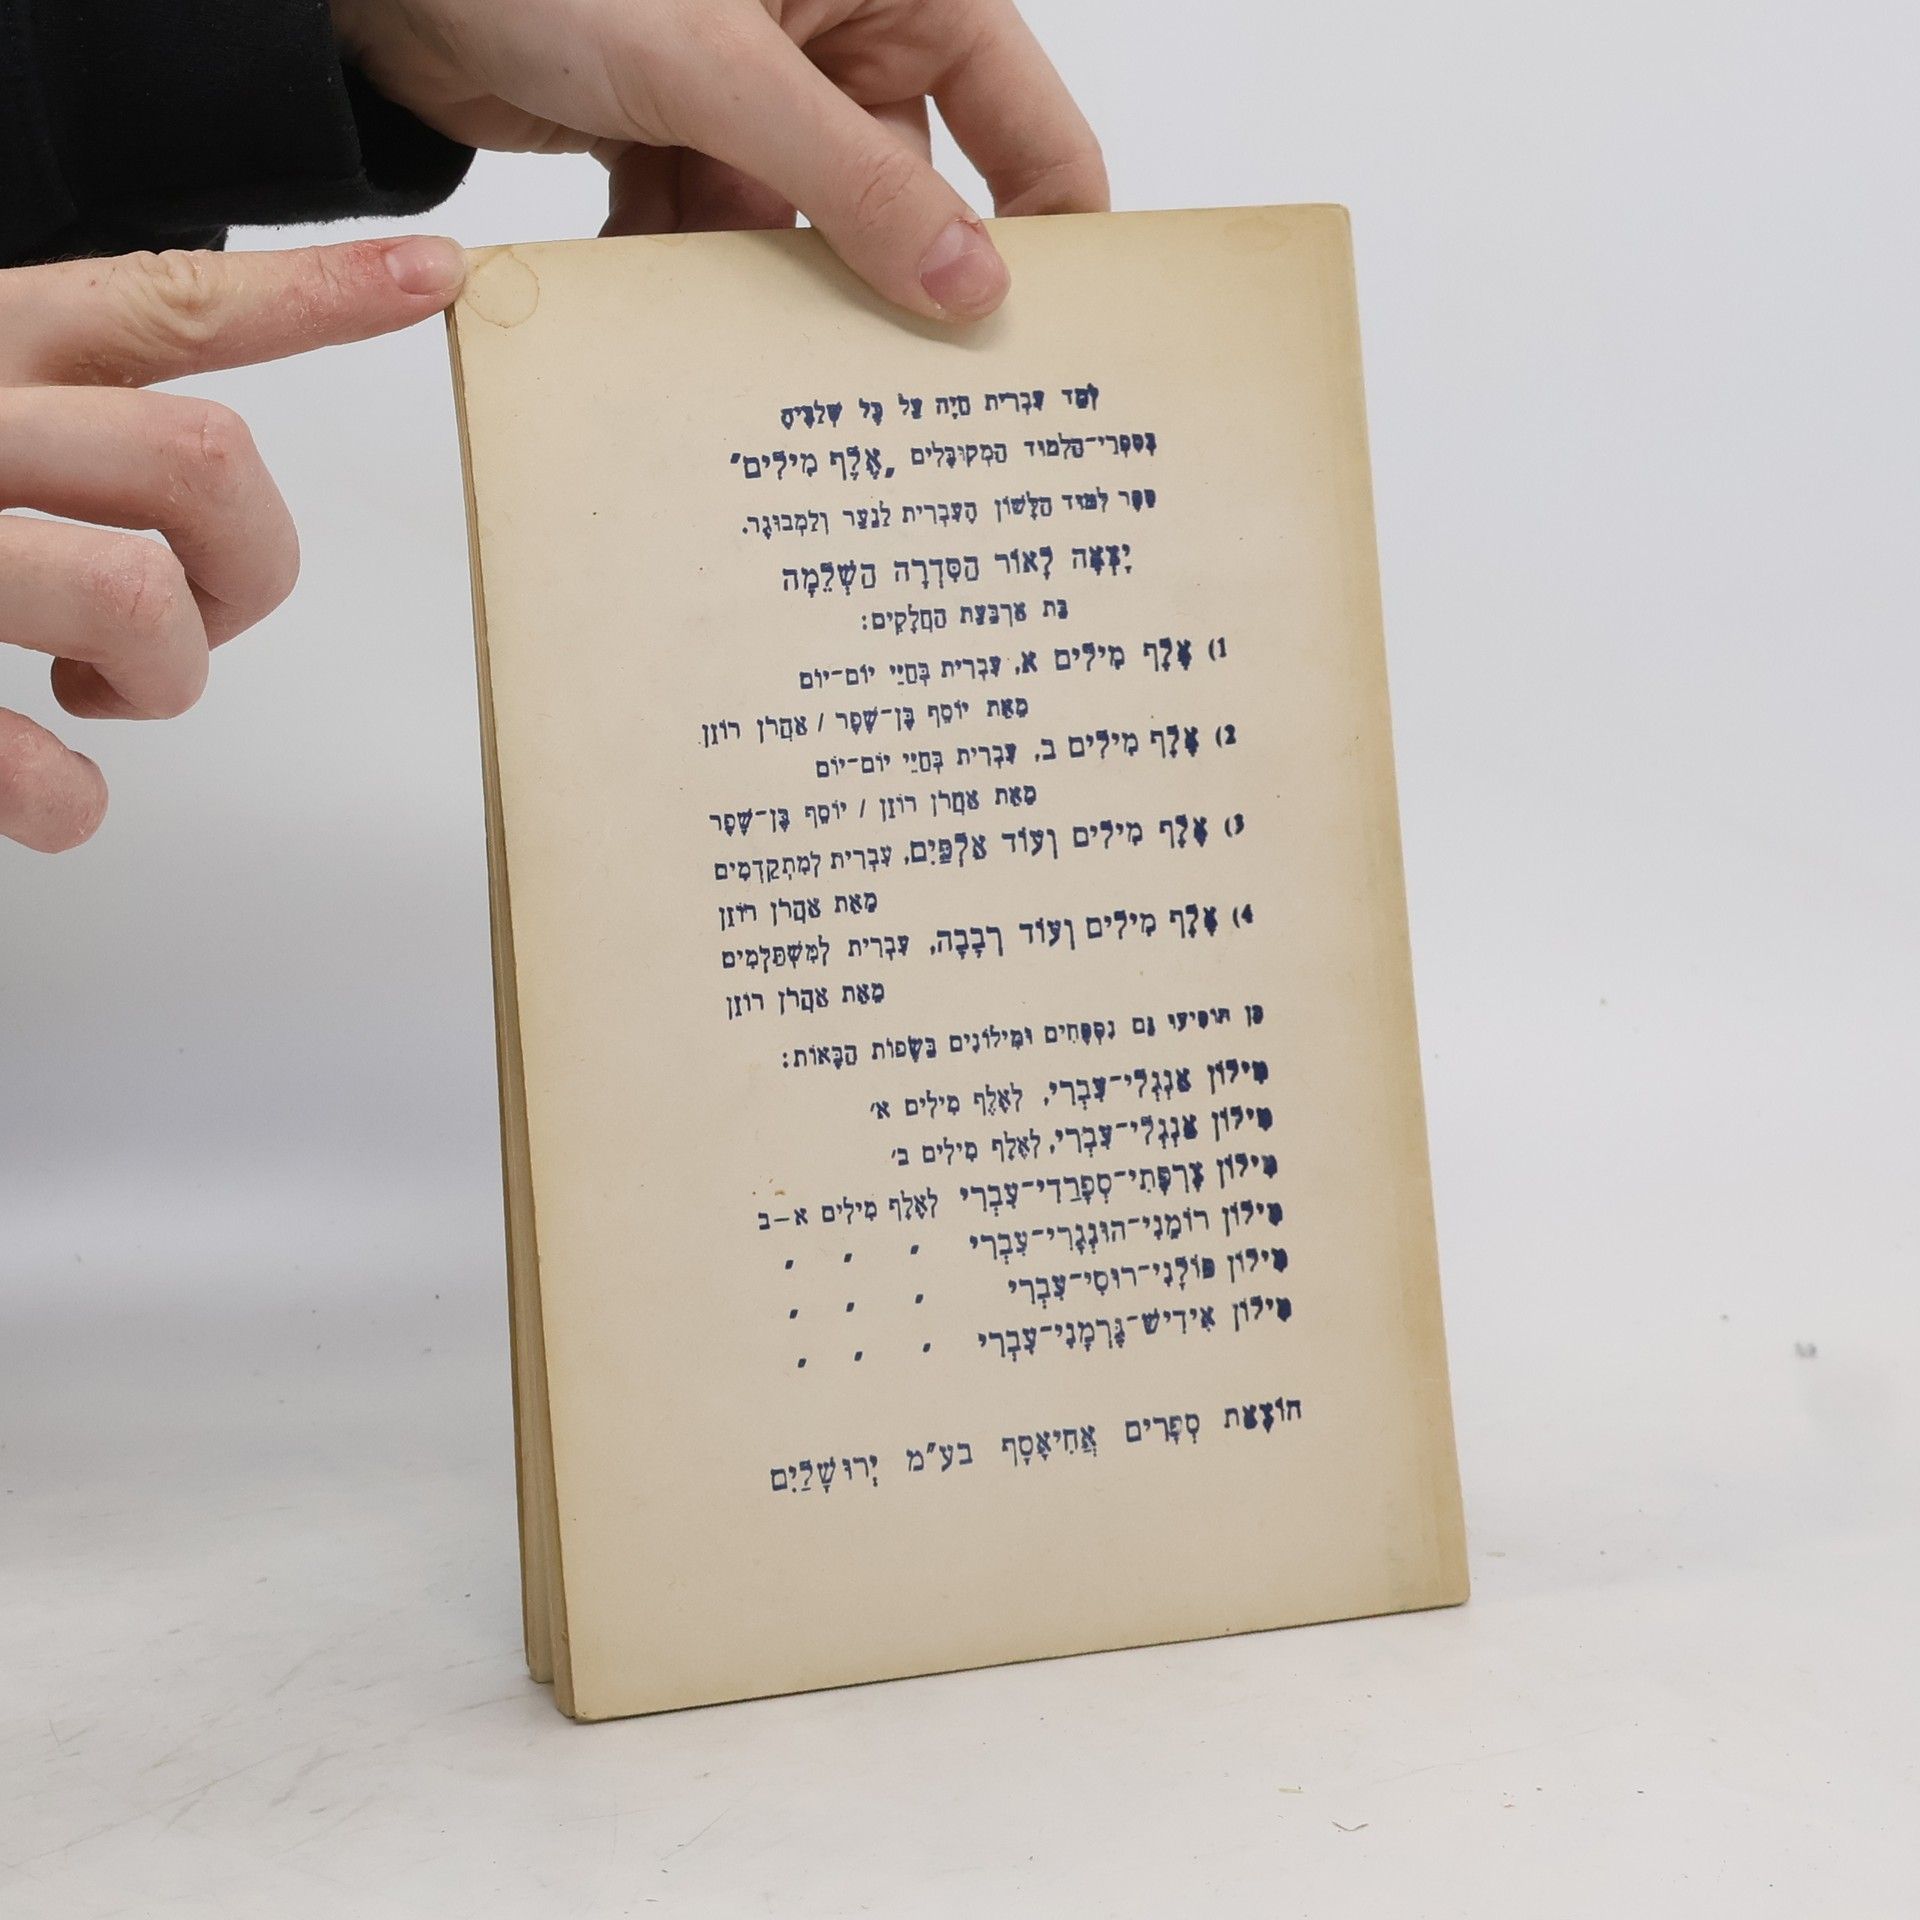 לְמַד עִבְרִית חַיָּה עַל כָּל שְׁלַבֶּיהָ
בְּסִפְרֵי־הַלִּמּוּד הַמְקוּבָּלִים „אֶלֶף מִילִים"
סֵפֶר לִמּוּד הַלָּשׁוֹן הָעִבְרִית לַנֹּעַר וְלַמְבוּגָּר.
יָצְאָה לָאוֹר הַסִּדְרָה הַשְּׁלֵמָה
בַּת אַרְבַּעַת הַחֲלָקִים:
1) אֶלֶף מִילִים א, עִבְרִית בְּחַיֵּי יוֹם־יוֹם
מֵאֵת יוֹסֵף בֶּן־שֶׁפֶר / אַהֲרֹן רוֹזֶן
2) אֶלֶף מִילִים ב, עִבְרִית בְּחַיֵּי יוֹם־יוֹם
מֵאֵת אַהֲרֹן רוֹזֶן / יוֹסֵף בֶּן־שֶׁפֶר
3) אֶלֶף מִילִים וְעוֹד אַלְפַּיִם, עִבְרִית לְמִתְקַדְּמִים
מֵאֵת אַהֲרֹן רוֹזֶן
4) אֶלֶף מִילִים וְעוֹד רְבָבָה, עִבְרִית לְמִשְׁתַּלְּמִים
מֵאֵת אַהֲרֹן רוֹזֶן
כֵּן הוֹפִיעוּ גַּם נִסְפָּחִים וּמִילוֹנִים בַּשָּׂפוֹת הַבָּאוֹת:
מִילוֹן אַנְגְּלִי־עִבְרִי, לְאֶלֶף מִילִים א׳
מִילוֹן אַנְגְּלִי־עִבְרִי, לְאֶלֶף מִילִים ב׳
מִילוֹן צָרְפָתִי־סְפָרַדִּי־עִבְרִי לְאֶלֶף מִילִים א–ב
מִילוֹן רוֹמָנִי־הוּנְגָּרִי־עִבְרִי " " "
מִילוֹן פּוֹלָנִי־רוּסִי־עִבְרִי " " "
מִילוֹן אִידִישׁ־גֶּרְמָנִי־עִבְרִי " " "
הוֹצָאַת סְפָרִים אֲחִיאָסָף בע"מ יְרוּשָׁלַיִם